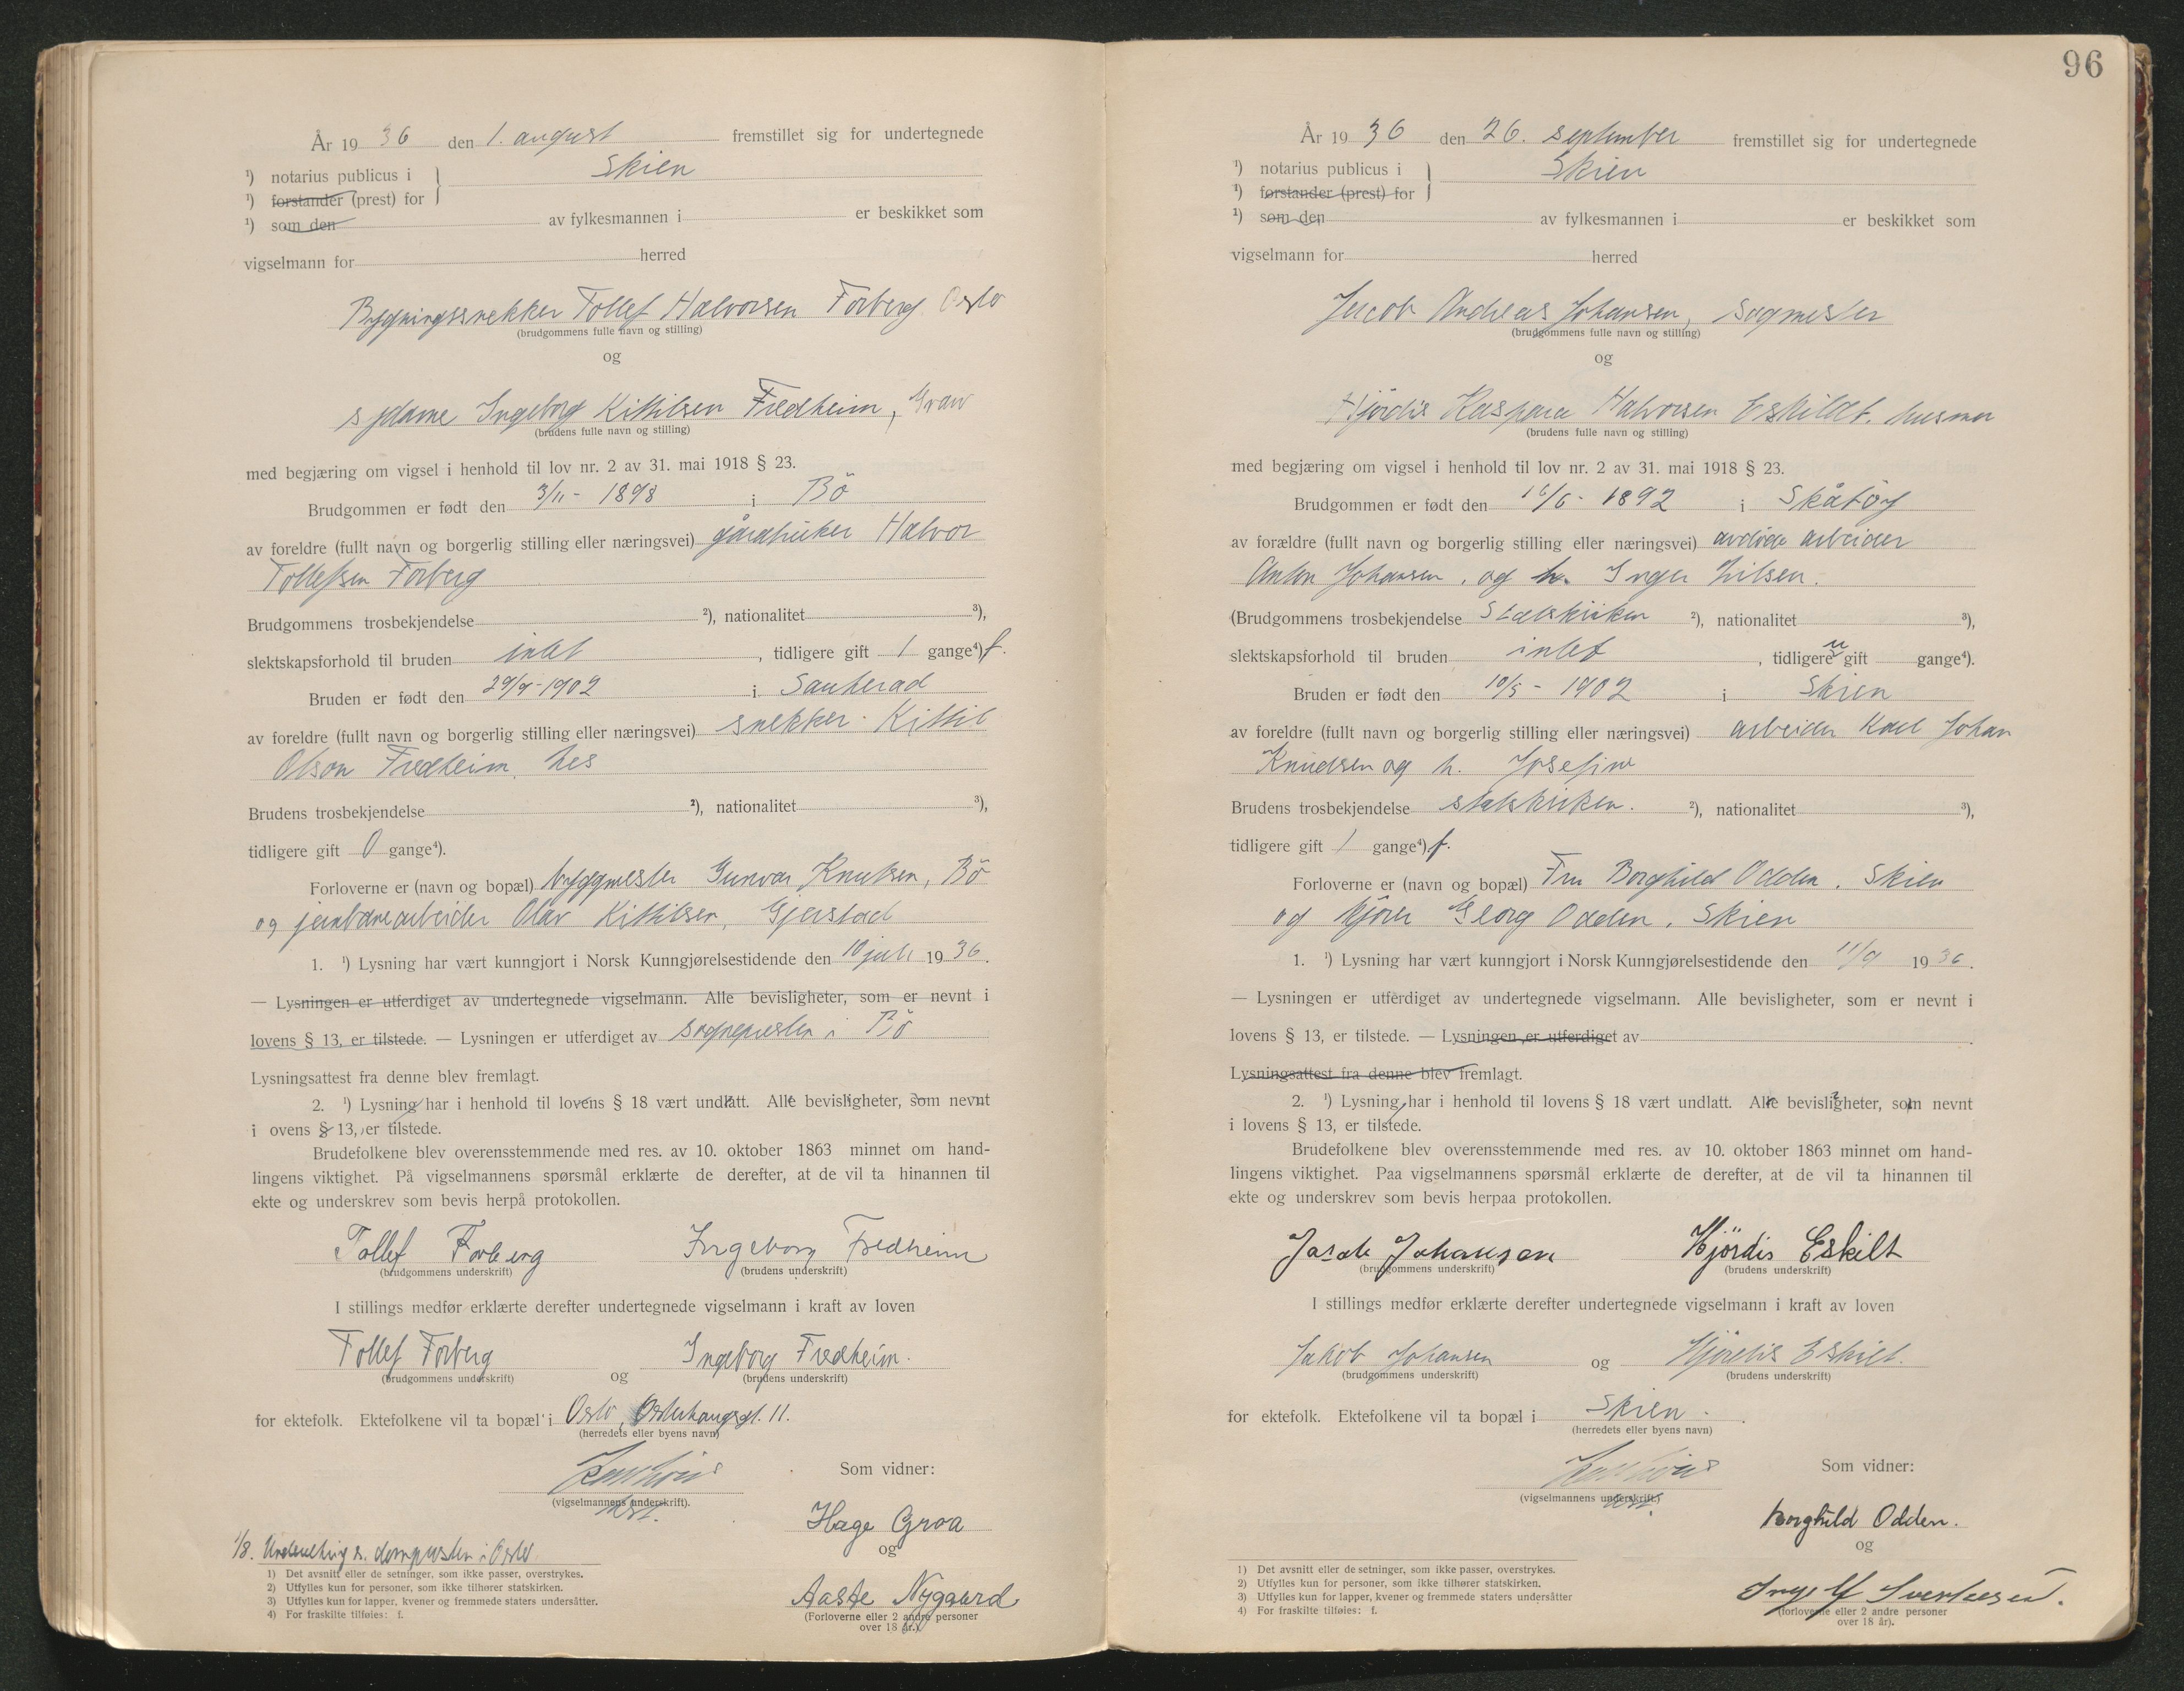 År 19 36 den 1. august fremstillet sig for undertegnede
¹) notarius publicus i } Skien
¹) forstander (prest) for
¹) som den av fylkesmannen i er beskikket som
vigselmann for herred
Bygningssnekker Tollef Halvorsen Forberg Oslo
(brudgommens fulle navn og stilling)
og
sydame Ingeborg Kittilsen Fredheim,
(brudens fulle navn og stilling)
med begjæring om vigsel i henhold til lov nr. 2 av 31. mai 1918 § 23.
Brudgommen er født den 3/11 - 1898 i Bö
av foreldre (fullt navn og borgerlig stilling eller næringsvei) gårdbruker Halvor
Tollefsen Forberg
Brudgommens trosbekjendelse ²), nationalitet ³),
slektskapsforhold til bruden intet, tidligere gift 1 gange⁴) f.
Bruden er født den 29/9 - 1902 i Sauherad
av foreldre (fullt navn og borgerlig stilling eller næringsvei) snekker Kittil
Olson Fredheim,
Brudens trosbekjendelse ²), nationalitet ³),
tidligere gift 0 gange⁴).
Forloverne er (navn og bopæl) byggmester Gunvar Knutsen, Bö
og jernbanearbeider Olav Kittilsen, Gjerstad
1. ¹) Lysning har vært kunngjort i Norsk Kunngjørelsestidende den 10 juli 19 36.
— Lysningen er utferdiget av undertegnede vigselmann. Alle bevisligheter, som er nevnt i
lovens § 13, er tilstede. — Lysningen er utferdiget av sognepresten i Bö
Lysningsattest fra denne blev fremlagt.
2. ¹) Lysning har i henhold til lovens § 18 vært undlatt. Alle bevisligheter, som nevnt
i ovens § 13, er tilstede.
Brudefolkene blev overensstemmende med res. av 10. oktober 1863 minnet om hand-
lingens viktighet. På vigselmannens spørsmål erklærte de derefter, at de vil ta hinannen til
ekte og underskrev som bevis herpå protokollen.
Tollef Forberg Ingeborg Fredheim
(brudgommens underskrift) (brudens underskrift)
I stillings medfør erklærte derefter undertegnede vigselmann i kraft av loven
Tollef Forberg og Ingeborg Fredheim.
(brudgommens underskrift) (brudens underskrift)
for ektefolk. Ektefolkene vil ta bopæl i Oslo, Osterhausgt. 11.
(herredets eller byens navn)
Som vidner:
(vigselmannens underskrift).
Hage Groa
og
1/8. Underretning s. domprosten i Oslo
Aaste Nygaard
(Forloverne eller 2 andre personer
over 18 år.)
1) Det avsnitt eller de setninger, som ikke passer, overstrykes.
2) Utfylles kun for personer, som ikke tilhører statskirken.
3) Utfylles kun for lapper, kvener og fremmede staters undersåtter.
4) For fraskilte tilføies: f.
96
År 19 36 den 26. september fremstillet sig for undertegnede
¹) notarius publicus i } Skien
¹) forstander (prest) for
¹) som den av fylkesmannen i er beskikket som
vigselmann for herred
Jacob Andreas Johansen, sagmester
(brudgommens fulle navn og stilling)
og
Hjördis Kaspara Halvorsen Eskildt. husmor
(brudens fulle navn og stilling)
med begjæring om vigsel i henhold til lov nr. 2 av 31. mai 1918 § 23.
Brudgommen er født den 16/6 - 1892 i Skåtöy
av forældre (fullt navn og borgerlig stilling eller næringsvei) avdöde arbeider
Anton Johansen, og h. Inger Nilsen.
(Brudgommens trosbekjendelse Statskirken ²), nationalitet ³),
slektskapsforhold til bruden intet, tidligere gift gange⁴).
Bruden er født den 10/5 - 1902 i Skien
av foreldre (fullt navn og borgerlig stilling eller næringsvei) arbeider Karl Johan
Knudsen og h. Josefine
Brudens trosbekjendelse statskirken. ²), nationalitet ³),
tidligere gift 1 gange⁴) f.
Forloverne er (navn og bopæl) Fru Borghild Odden. Skien
og kjörer Georg Odden. Skien
1. ¹) Lysning har vært kunngjort i Norsk Kunngjørelsestidende den 11/9 19 36.
— Lysningen er utferdiget av undertegnede vigselmann. Alle bevisligheter, som er nevnt i
lovens § 13, er tilstede. — Lysningen er utferdiget av
Lysningsattest fra denne blev fremlagt.
2. ¹) Lysning har i henhold til lovens § 18 vært undlatt. Alle bevisligheter, som nevnt
i lovens § 13, er tilstede.
Brudefolkene blev overensstemmende med res. av 10. oktober 1863 minnet om hand-
lingens viktighet. Paa vigselmannens spørsmål erklærte de derefter, at de vil ta hinannen til
ekte og underskrev som bevis herpaa protokollen.
Jacob Johansen Hjördis Eskilt
(brudgommens underskrift) (brudens underskrift)
I stillings medfør erklærte derefter undertegnede vigselmann i kraft av loven
Jakob Johansen og Hjördis Eskilt.
(brudgommens underskrift) (brudens underskrift)
for ektefolk. Ektefolkene vil ta bopæl i Skien.
(herredets eller byens navn)
Som vidner:
(vigselmannens underskrift.)
Borghild Odden.
og
(forloverne eller 2 andre personer
over 18 år).
1) Det avsnitt eller de setninger, som ikke passer, overstrykes.
2) Utfylles kun for personer, som ikke tilhører statskirken.
3) Utfylles kun for lapper, kvener og fremmede staters undersåtter
4) For fraskilte tilføies: f.